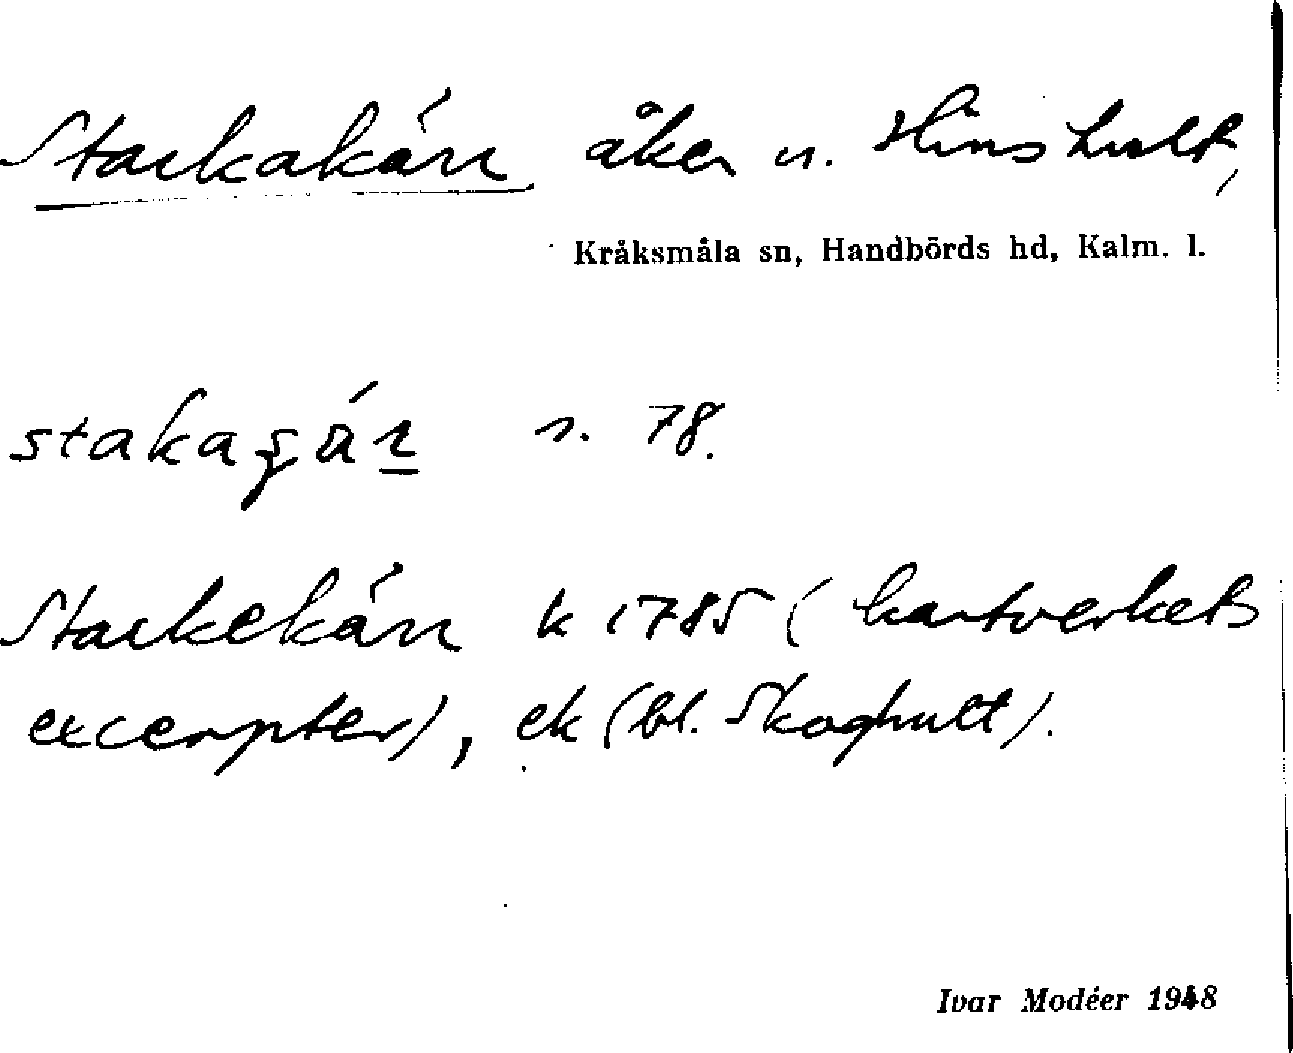 Starkakärr åker u. Hinshult,
Kråksmåla sn, Handbörds hd, Kalm. l.
s. 78.
Starkekärr k 1785 (kartverkets
excerpter), ek (bl. Skoghult).
Ivar Modéer 1948